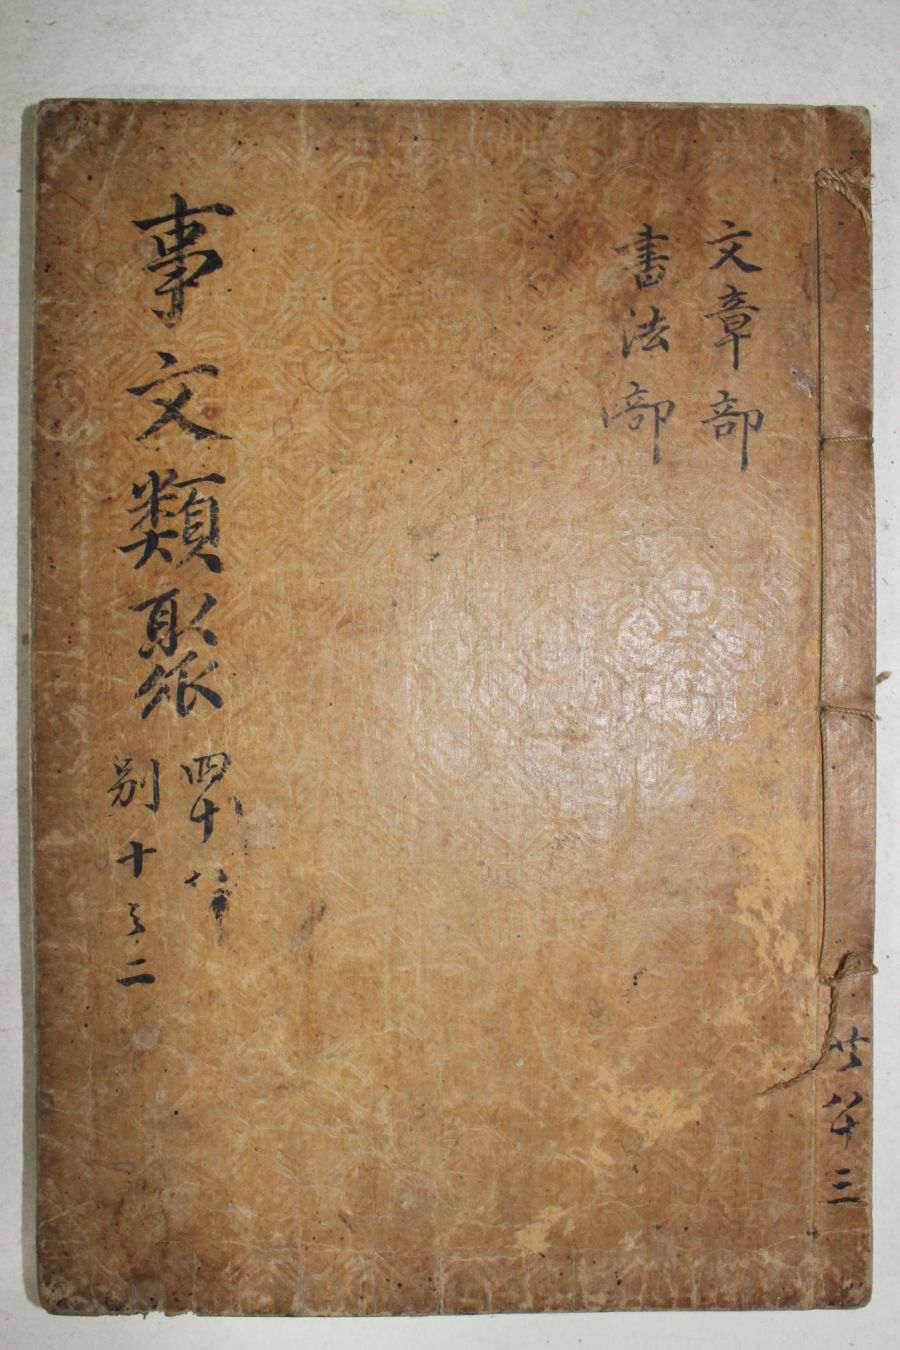 共八十三
文章部
書法部
事文類聚
四十
別十之二